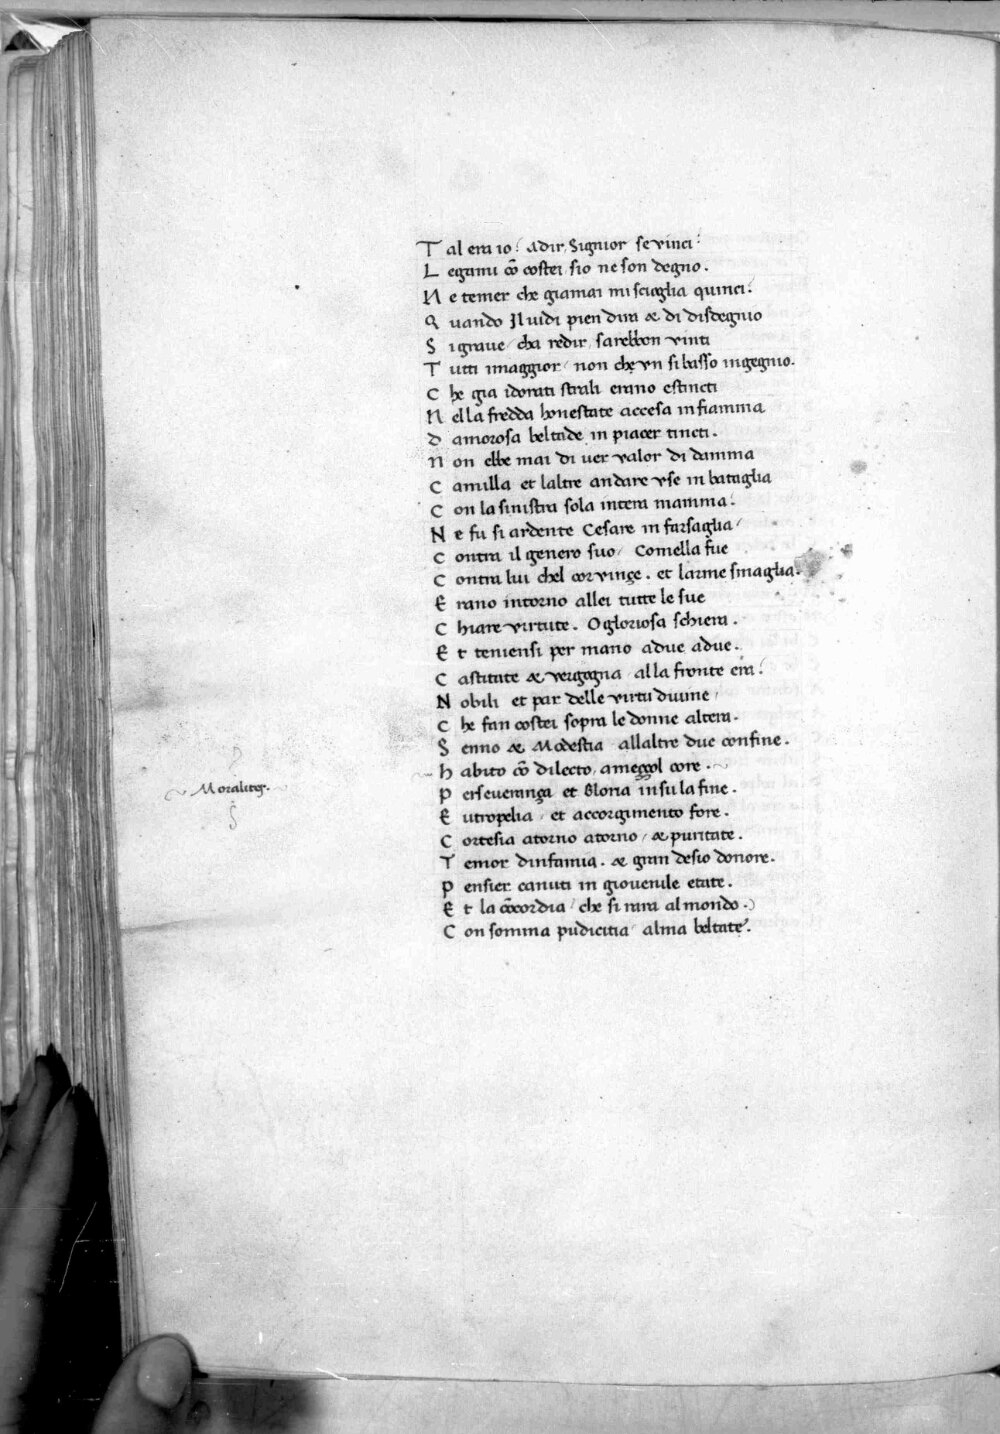 Tal era io: Adir, Signior se vinci:
Legami cō costei, sio ne son degno.
Ne temer che giamai mi scioglia quinci:
Quando Il uidi pien dira & di disdegnio
Si graue, cha redir, sarebbon vinti
Tutti imaggior, non che vn si basso ingegnio.
Che gia idorati strali erano estincti
Nella fredda honestate accesa in fiamma
Damorosa beltade in piacer tincti.
Non ebbe mai di uer valor di damma
Camilla et laltre andare vse in bataglia
Con la sinistra sola intera mamma:
Ne fu si ardente Cesare in farsaglia/
Contra il genero suo/ Comella fue
Contra lui chel cor vinçe. et larme smaglia.
Erano intorno allei tutte le sue
Chiare virtute. O gloriosa schiera.
Et teniensi per mano adue adue.
Castitate & vergogna alla fronte era:
Nobili et par delle virtu diuine/
Che fan costei sopra le donne altera.
Senno & Modestia allaltre due confine.
Moralites.
Habito cō dilecto, ameççol core.
Perseverança et Gloria insu la fine.
Eutropelia, et accorgimento fore.
Cortesia atorno atorno, & puritate.
Temor dinfamia. & gran desio donore.
Pensier canuti in giouenile etate.
Et la cōcordia/ che si rara al mondo.
Con somma pudicitia alma beltate.